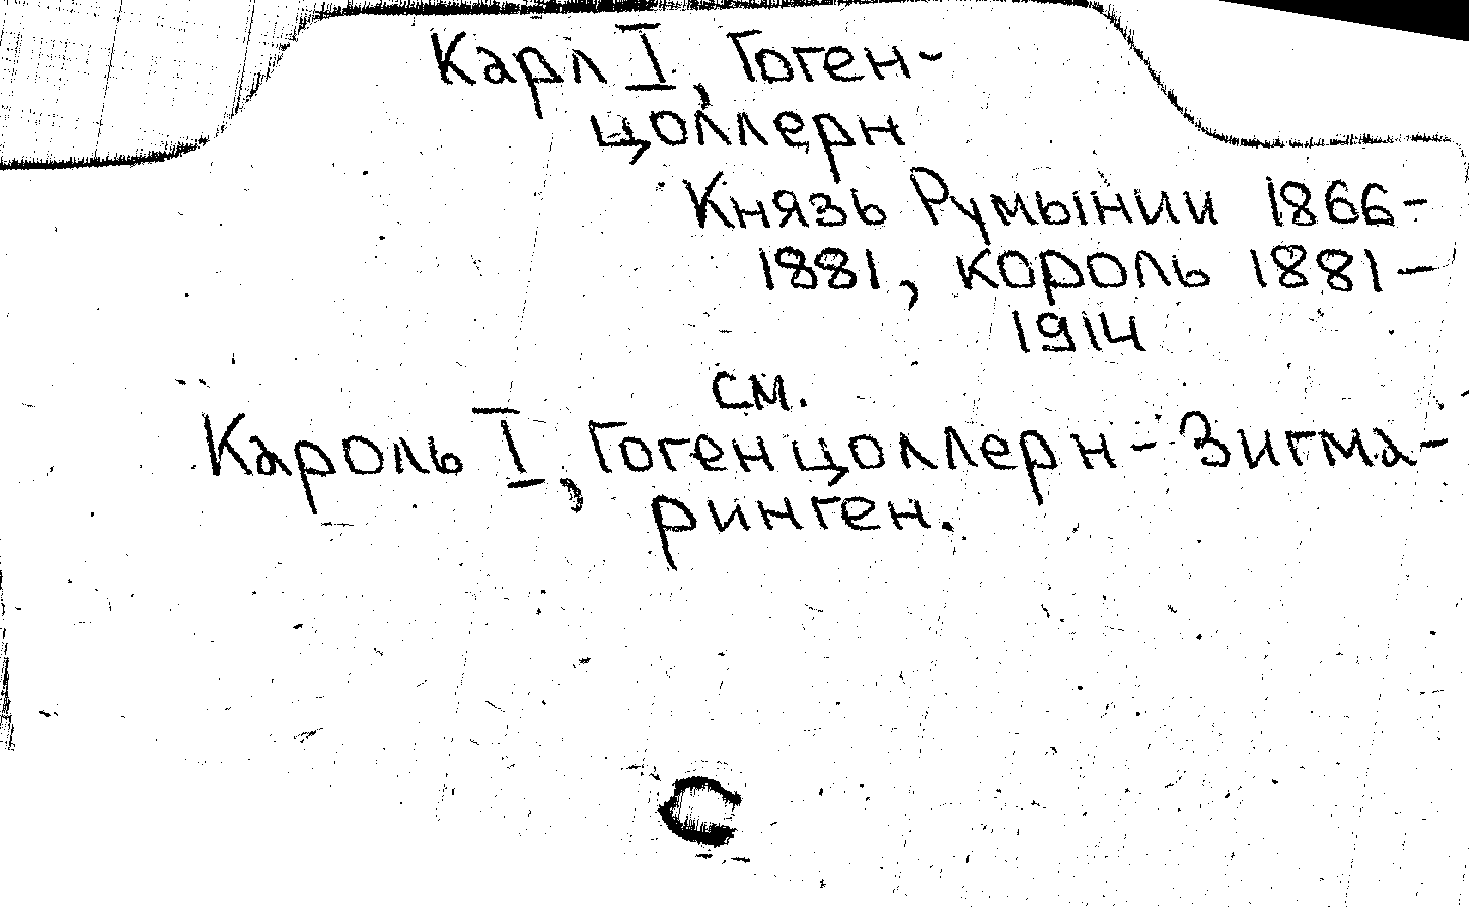 Карл I, Гоген-
цоллерн
Князь Румынии 1866-
1881, король 1881-
1914
см.
Кароль I, Гогенцоллерн-Зигма-
ринген.